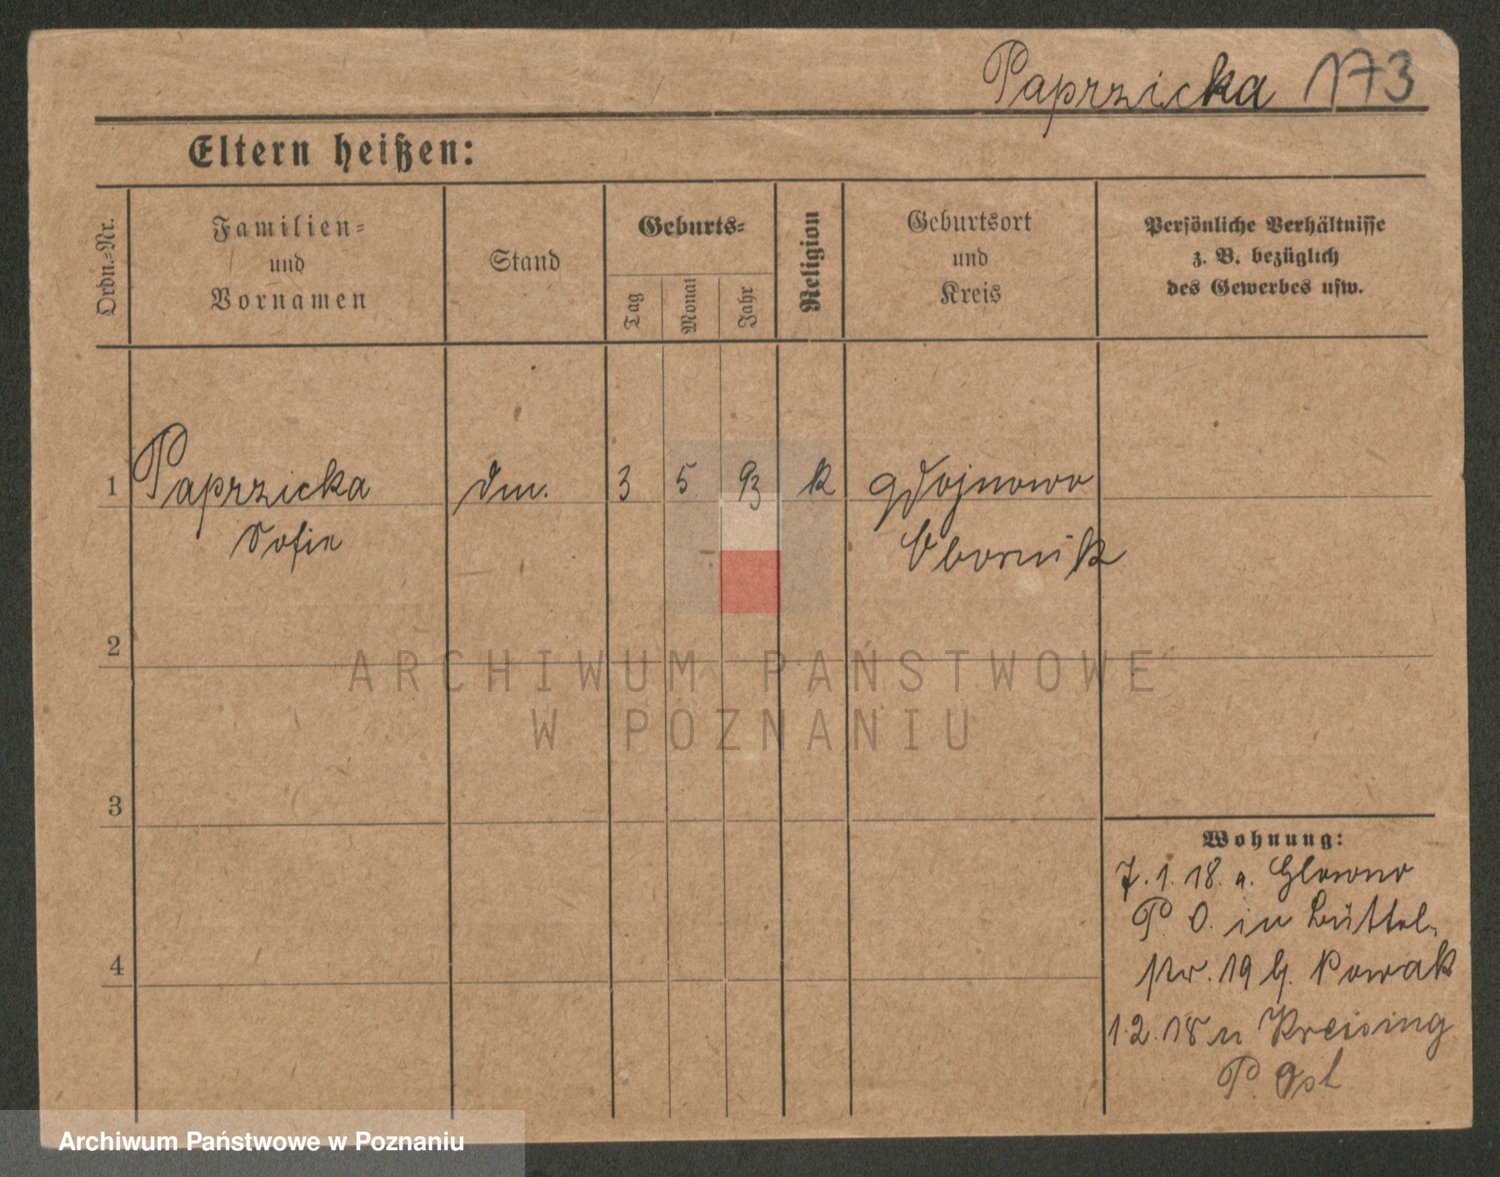 Paprzicka 173
Eltern heißen:
Ordn.-Nr.
Familien-
und
Vornamen
Stand
Geburts-
Tag
Monat
Jahr
Religion
Geburtsort
und
Kreis
Persönliche Verhältnisse
z. B. bezüglich
des Gewerbes usw.
1 Paprzicka 3 5 93 k
Sofie Obornik
2
3
4
Wohnung:
7.1.18. a. Glowno
P. O. in Büttel-
str. 19 b. Nowak
1.2.18 n Kreising
P. Ost
ARCHIWUM PAŃSTWOWE
W POZNANIU
Archiwum Państwowe w Poznaniu